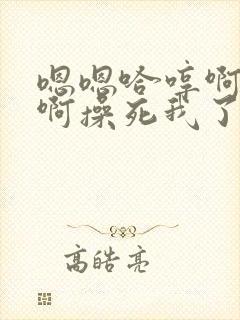 嗯嗯哈哼啊
啊操死我了
高皓亮